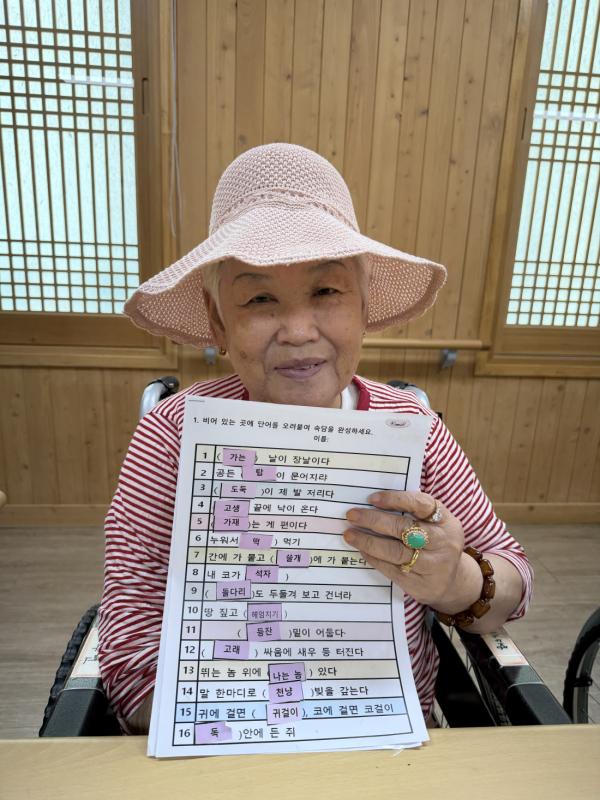 1. 비어 있는 곳에 단어를 오려붙여 속담을 완성하세요.
이름:
1 ( 가는 ) 날이 장날이다
2 공든 탑 이 문어지랴
3 ( 도둑 )이 제 발 저리다
4 고생 끝에 낙이 온다
5 ( 가재 )는 게 편이다
6 누워서 떡 ) 먹기
7 간에 가 붙고 ( 쓸개 )에 가 붙는다
8 내 코가 석자 )
9 ( 돌다리 )도 두둘겨 보고 건너라
10 땅 짚고 ( 헤엄치기 )
11 ( 등잔 )밑이 어둡다
12 ( 고래 ) 싸움에 새우 등 터진다
13 뛰는 놈 위에 ( 나는 놈 ) 있다
14 말 한마디로 ( 천냥 )빚을 갚는다
15 귀에 걸면 ( 귀걸이 ), 코에 걸면 코걸이
16 독 )안에 든 쥐